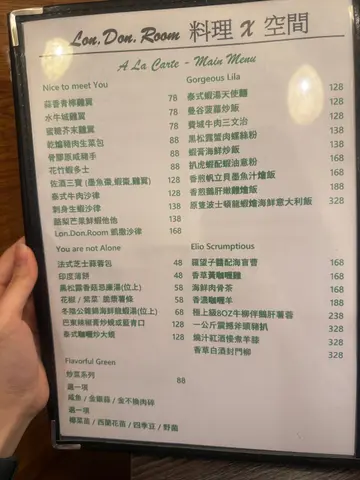 Lon. Don. Room 料理 X 空間
A La Carte - Main Menu
Nice to meet You
蒜香青檸雞翼 78
水牛城雞翼 78
蜜糖芥末雞翼 78
乾煸豬肉生菜包 88
骨膠原咸豬手 88
花竹蝦多士 88
佐酒三寶 (墨魚棗,蝦棗,雞翼) 128
泰式牛肉沙律 128
刺身生蝦沙律 138
酪梨芒果鮮蝦他他 138
Lon.Don.Room 凱撒沙律 168
You are not Alone
法式芝士蒜蓉包 48
印度薄餅 48
黑松露香菇忌廉湯(位上) 58
花椒 / 紫菜 脆薯條 58
冬陰公錦錦海鮮龍蝦湯(位上) 68
巴東辣椒膏炒蜆或藍青口 128
泰式咖喱炒大蜆 128
Flavorful Green
炒菜系列 88
選一項
咸魚 / 金銀蒜 / 金不換肉碎
選一項
椰菜苗 / 西蘭花苗 / 四季豆 / 野菌
Gorgeous Lila
泰式蝦湯天使麵 128
曼谷菠蘿炒飯 128
費城牛肉三文治 128
黑松露蟹肉螺絲粉 138
蝦膏海鮮炒飯 138
扒虎蝦配蝦油意粉 168
香煎帆立貝墨魚汁燴飯 168
香煎鵝肝嫩雞燴飯 188
原隻波士頓龍蝦燴海鮮意大利飯 328
Elio Scrumptious
羅望子醬配海盲曹 168
香草黃咖喱雞 168
海鮮肉骨茶 168
香濃咖喱羊 188
極上級8OZ牛柳伴鵝肝薯蓉 238
一公斤震撼斧頭豬扒 328
燒汁紅酒慢煮羊膝 328
香草白酒封門柳 328